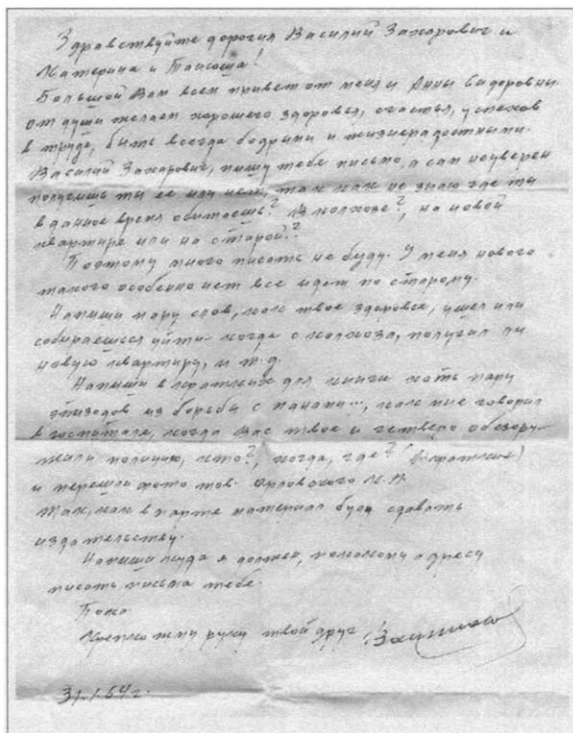 Здравствуйте дорогия Василий Захарович и
Катерина и Таисоша!
Большой Вам всем привет от меня и Анны Сидоровны
от души желаем хорошего здоровья, счастья, успехов
в труде, быть всегда бодрыми и жизнерадостными.
Василий Захарович, пишу тебе письмо, а сам неуверен
получишь ты ее или нет, так как не знаю где ты
в данное время обитаешь? В колхозе?, на новой
квартире или на старой??
Поэтому много писать не буду. У меня нового
такого особенно нет все идет по старому.
Напиши пару слов, как твое здоровье, ушел или
собираешься уйти когда с колхоза, получил ли
новую квартиру, и т.д.
Напиши в кратце для книги хоть пару
эпизодов из борьбы с панами..., как мне говорил
в госпитале, когда Вас твое и четверо обезору-
жили полицию, кто?, когда, где? (В кратце)
и перешли фото тов. Орловского К.П.
Так, как в марте материал буду сдавать
издательству.
Напиши куда я должен, по какому адресу
писать письма тебе.
Пока
Крепко жму руку твой друг
31.1.64 г.